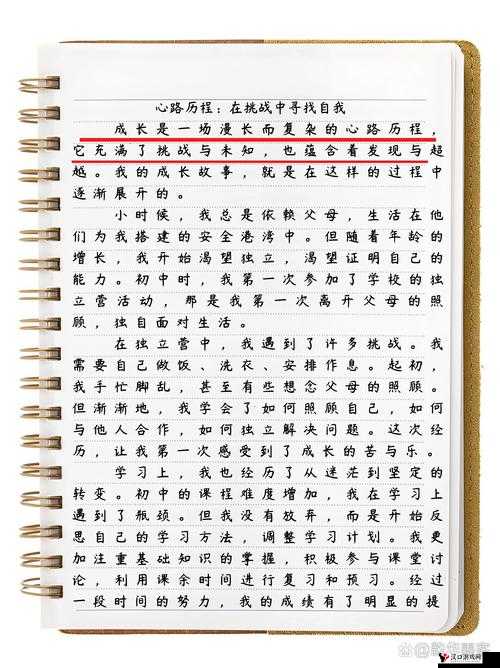 心路历程：在挑战中寻找自我
成长是一场漫长而复杂的心路历程，
它充满了挑战与未知，也蕴含着发现与超
越。我的成长故事，就是在这样的过程中
逐渐展开的。
小时候，我总是依赖父母，生活在他
们为我搭建的安全港湾中。但随着年龄的
增长，我开始渴望独立，渴望证明自己的
能力。初中时，我第一次参加了学校的独
立营活动，那是我第一次离开父母的照
顾，独自面对生活。
在独立营中，我遇到了许多挑战。我
需要自己做饭、洗衣、安排作息。起初，
我手忙脚乱，甚至有些想念父母的照顾。
但渐渐地，我学会了如何照顾自己，如何
与他人合作，如何独立解决问题。这次经
历，让我第一次感受到了成长的苦与乐。
学习上，我也经历了从迷茫到坚定的
转变。初中的课程难度增加，我在学习上
遇到了瓶颈。但我没有放弃，而是开始反
思自己的学习方法，调整学习计划。我更
加注重基础知识的掌握，积极参与课堂讨
论，利用课余时间进行复习和预习。经过
一段时间的努力，我的成绩有了明显的提
汉口游戏网